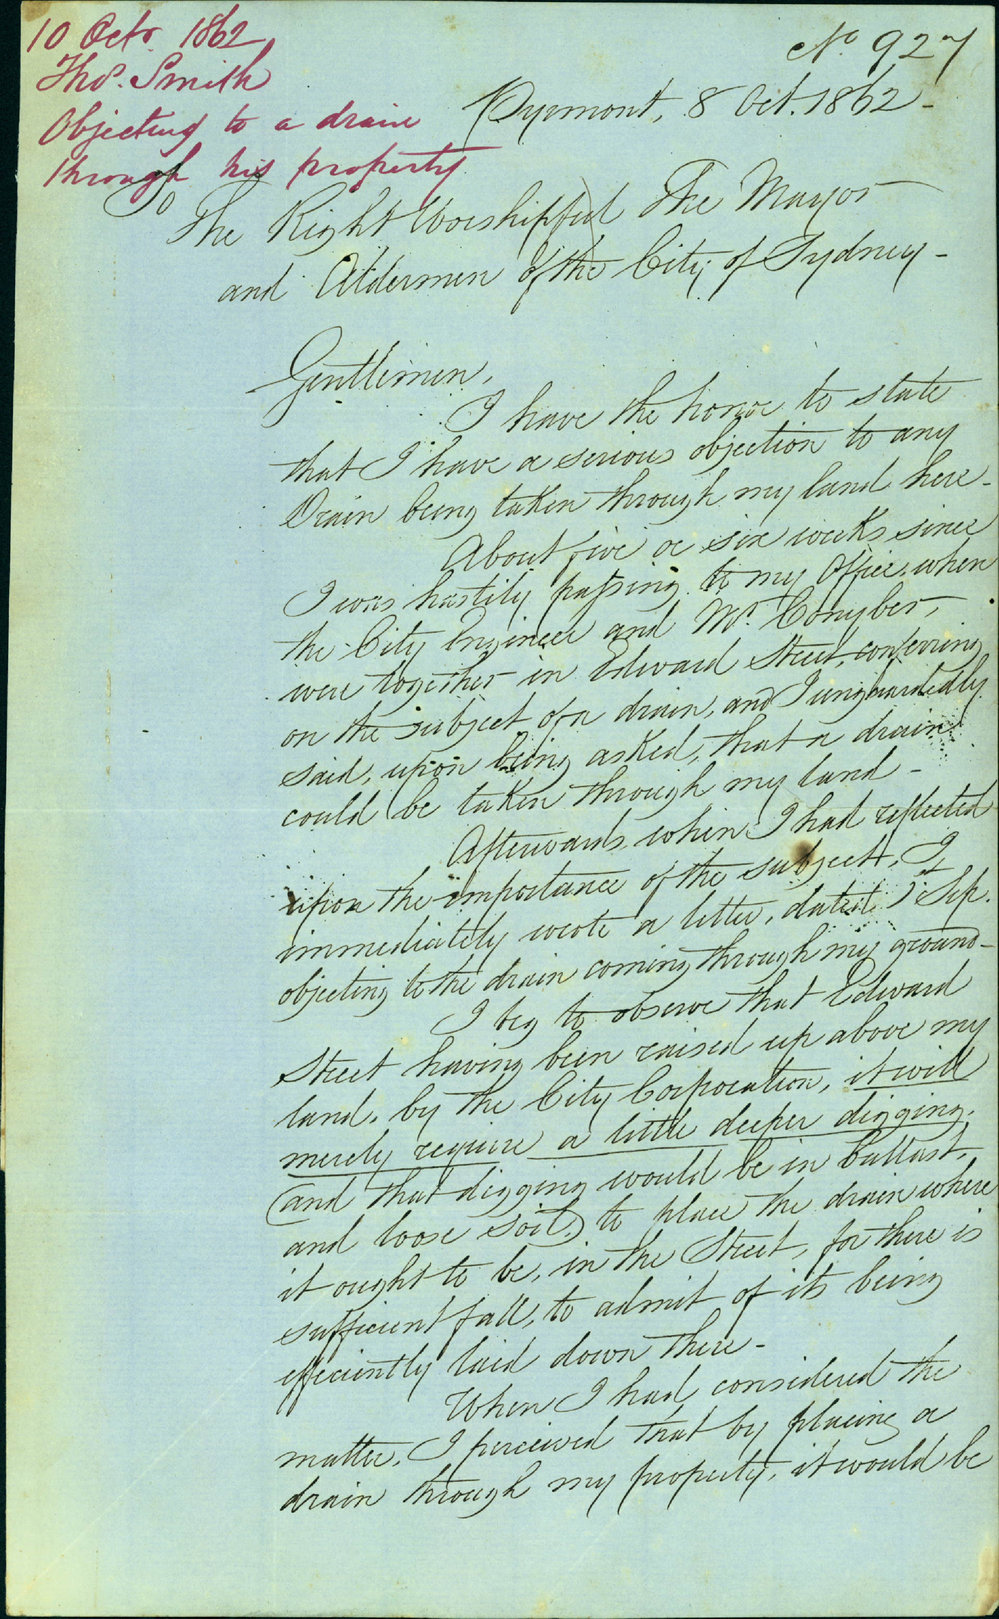 10 Octr. 1862
Thos. Smith
Objecting to a drain
through his property
No. 927
Pyrmont, 8 Oct. 1862 -
To
The Right Worshipful The Mayor
and Aldermen of the City of Sydney -
Gentlemen,
I have the honor to state
that I have a serious objection to any
Drain being taken through my land here -
About five or six weeks since
I was hastily passing to my Office, when
the City Engineer and Mr.
were together in Edward Street, conferring
on the subject of a drain, and I unguardedly
said, upon being asked, that a drain
could be taken through my land -
Afterwards, when I had reflected
upon the importance of the subject, I
immediately wrote a letter, dated 1st Sep.
objecting to the drain coming through my ground -
I beg to observe that Edward
Street having been raised up above my
land, by the City Corporation, it will
merely require a little deeper digging,
(and that digging would be in ballast,
and loose soil) to place the drain where
it ought to be, in the Street, for there is
sufficient fall, to admit of its being
efficiently laid down there -
When I had considered the
matter, I perceived that by placing a
drain through my property, it would be